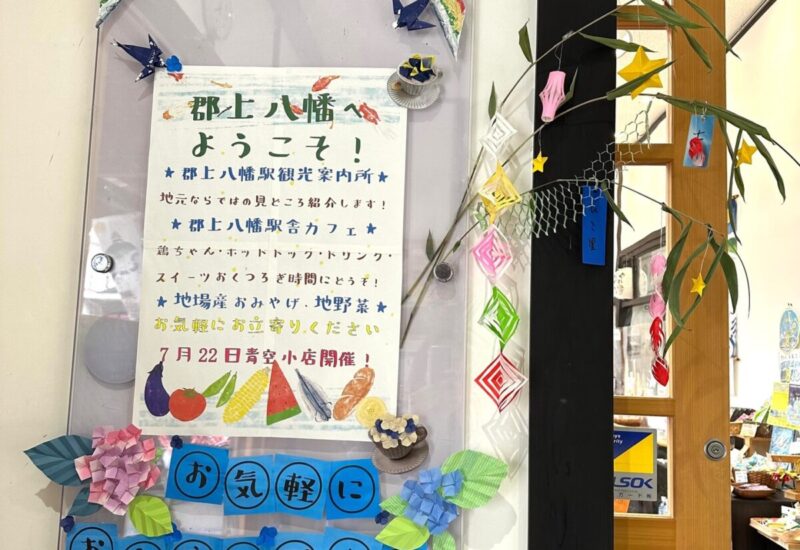 郡上八幡へ
ようこそ!
★郡上八幡駅観光案内所★
地元ならではの見どころ紹介します!
★郡上八幡駅舎カフェ★
鶏ちゃん・ホットドック・ドリンク・
スイーツおくつろぎ時間にどうぞ!
★地場産おみやげ・地野菜★
お気軽にお立寄りください
7月22日青空小店開催!
お気軽に